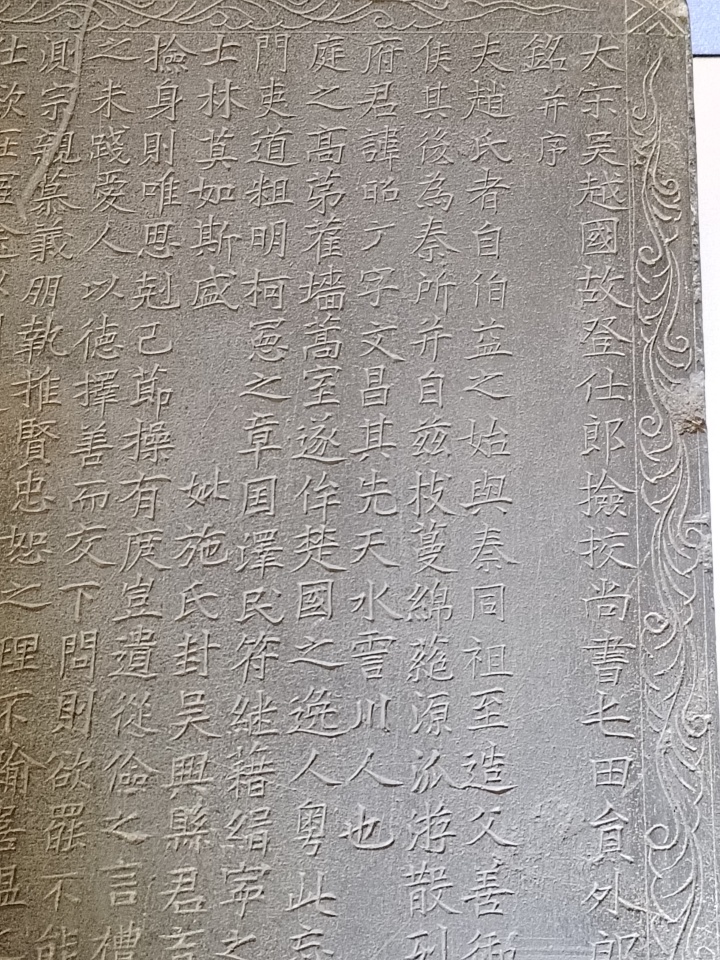 大宋吳越國故登仕郎撿挍尚書屯田貟外郎
銘并序
夫趙氏者自伯益之始與秦同祖至造父善御
侯其後為秦所并自兹枝蔓綿源泒游散列
府君諱昭字文昌其先天水霅川人也
庭之高苐藋墻蒿室遂侔楚國之逸人粤此
門吏道粗明柯之章囯澤民符継藉絹之
士林莫如斯盛 妣施氏封吳興縣君
撿身則唯思剋己莭操有度豈遺從儉之言
之未踐愛人以徳擇善而交下問則欲罷不能
測宗親慕義朋執推賢忠恕之理不踰喜愠